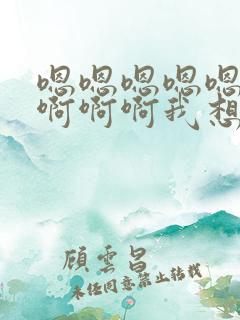 嗯嗯嗯嗯嗯
啊啊啊我想
顾云昌
未经同意禁止转载